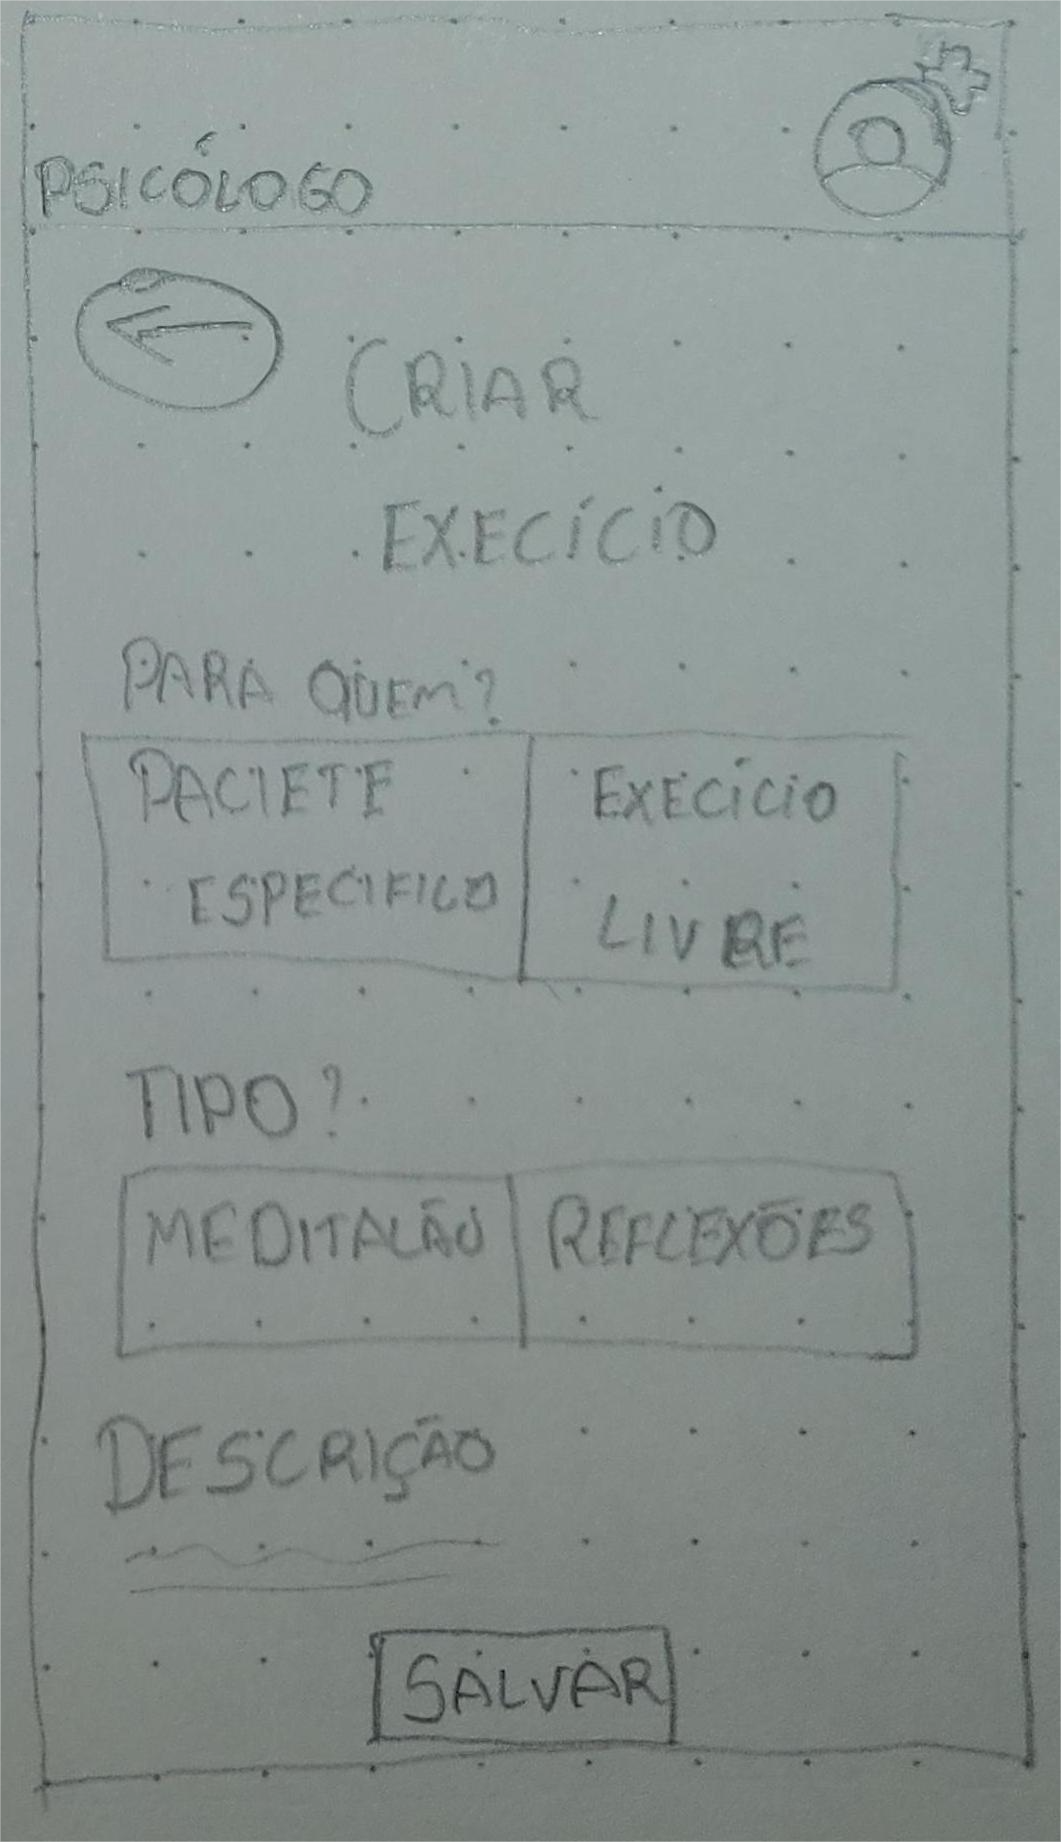 PSICÓLOGO
CRIAR
EXECÍCIO
PARA QUEM?
PACIETE
ESPECIFICO
EXECÍCIO
LIVRE
TIPO?
MEDITAÇÃO
REFLEXÕES
DESCRIÇÃO
SALVAR